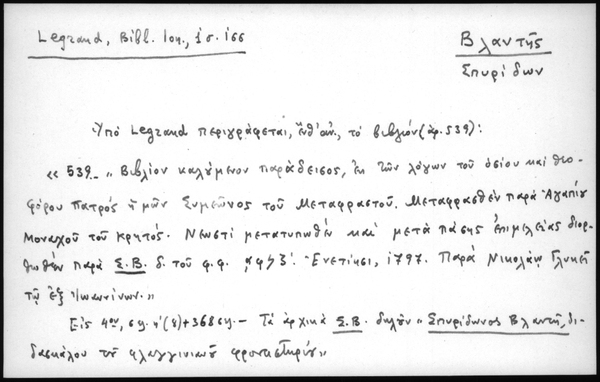 Legrand, Bibl. Ion., 1 σ. 166
Βλαντῆς
Σπυρίδων
Ὑπό Legrand περιγράφεται, ἔνθ'ἀν., τό βιβλίον (ἀρ. 539):
« 539._ „ Βιβλίον καλούμενον παράδεισος, ἐκ τῶν λόγων τοῦ ὁσίου καί θεο-
φόρου πατρός ἡμῶν Συμεῶνος τοῦ Μεταφραστοῦ. Μεταφρασθέν παρά Ἀγαπίου
Μοναχοῦ τοῦ κρητός. Νεωστί μετατυπωθέν καί μετά πάσης ἐπιμελείας διορ-
θωθέν παρά Σ.Β. δ. τοῦ φ.φ. ͵αψϟζʹ. Ἐνετίῃσι, 1797. Παρά Νικολάῳ Γλυκεῖ
τῷ ἐξ Ἰωαννίνων.»
Εἰς 4ον, σσ. ηʹ (8)+368 σσ.— Τά ἀρχικά Σ.Β. δηλοῦν „ Σπυρίδωνος Βλαντῆ, δι-
δασκάλου τοῦ φλαγγινιανοῦ φροντιστηρίου»